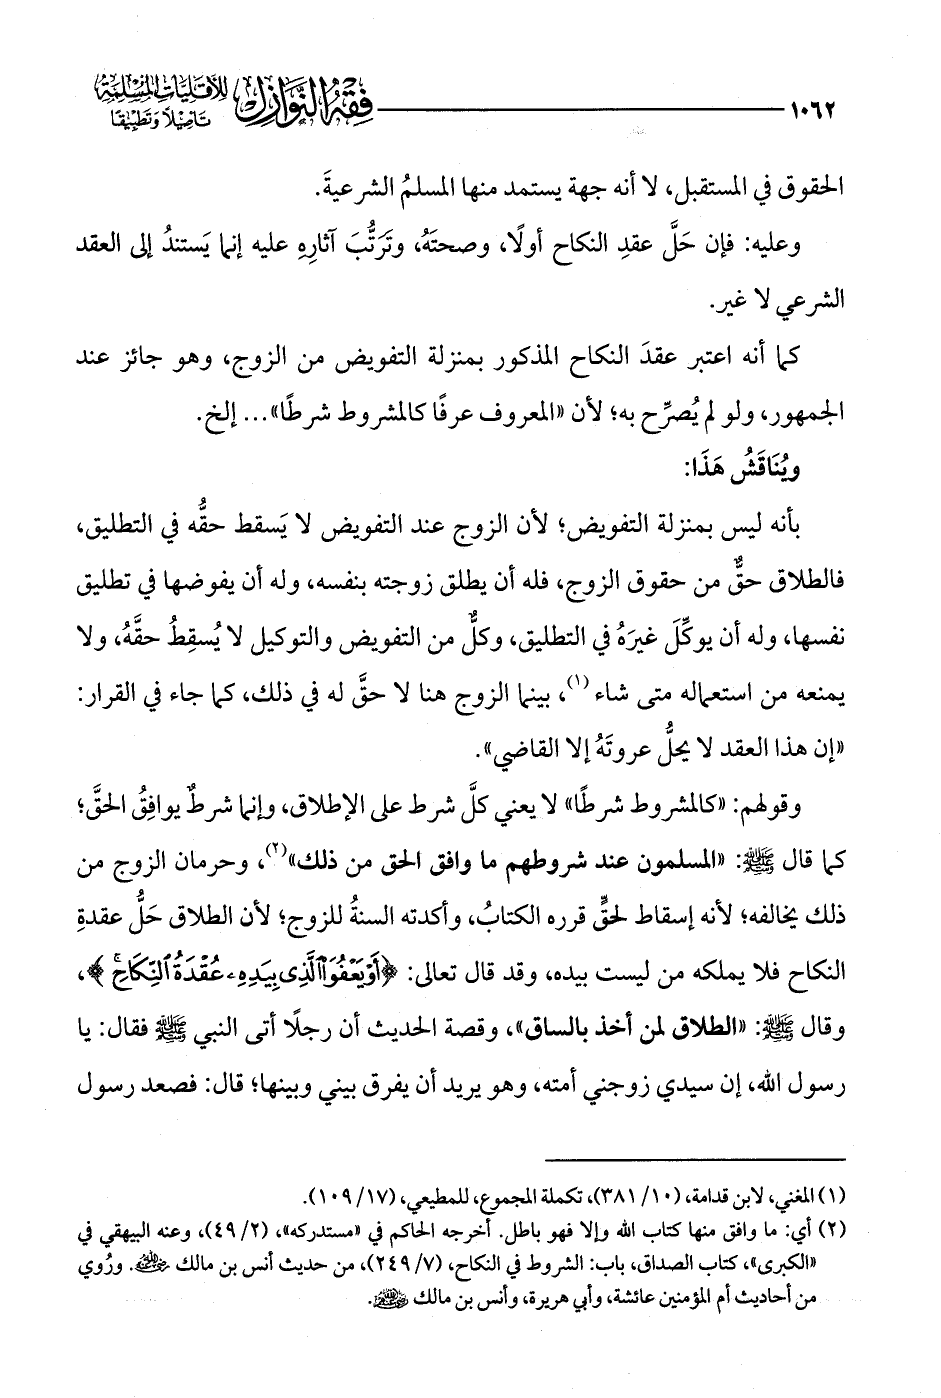 ١٠٦٢
فقه النوازل للأقليات المسلمة
تأصيلًا وتطبيقًا
الحقوق في المستقبل، لا أنه جهة يستمد منها المسلمُ الشرعيةَ.
وعليه: فإن حَلَّ عقدِ النكاح أولًا، وصحتَهُ، وتَرَتُّبَ آثارِهِ عليه إنما يَستندُ إلى العقد
الشرعي لا غير.
كما أنه اعتبر عقدَ النكاح المذكور بمنزلة التفويض من الزوج، وهو جائز عند
الجمهور، ولو لم يُصرِّح به؛ لأن «المعروف عرفًا كالمشروط شرطًا»... إلخ.
ويُنَاقَشُ هَذَا:
بأنه ليس بمنزلة التفويض؛ لأن الزوج عند التفويض لا يَسقط حقُّه في التطليق،
فالطلاق حقٌّ من حقوق الزوج، فله أن يطلق زوجته بنفسه، وله أن يفوضها في تطليق
نفسها، وله أن يوكِّلَ غيرَهُ في التطليق، وكلٌّ من التفويض والتوكيل لا يُسقِطُ حقَّهُ، ولا
يمنعه من استعماله متى شاء (١)، بينما الزوج هنا لا حقَّ له في ذلك، كما جاء في القرار:
«إن هذا العقد لا يحلُّ عروتَهُ إلا القاضي».
وقولهم: «كالمشروط شرطًا» لا يعني كلَّ شرط على الإطلاق، وإنما شرطٌ يوافِقُ الحقَّ؛
كما قال ﷺ: «المسلمون عند شروطهم ما وافق الحق من ذلك»(٢)، وحرمان الزوج من
ذلك يخالفه؛ لأنه إسقاط لحقٍّ قرره الكتابُ، وأكدته السنةُ للزوج؛ لأن الطلاق حَلُّ عقدةِ
النكاح فلا يملكه من ليست بيده، وقد قال تعالى: ﴿أَوْ يَعْفُوَا۟ ٱلَّذِى بِيَدِهِۦ عُقْدَةُ ٱلنِّكَاحِ﴾،
وقال ﷺ: «الطلاق لمن أخذ بالساق»، وقصة الحديث أن رجلًا أتى النبي ﷺ فقال: يا
رسول الله، إن سيدي زوجني أمته، وهو يريد أن يفرق بيني وبينها؛ قال: فصعد رسول
(١) المغني، لابن قدامة، (١٠/ ٣٨١)، تكملة المجموع، للمطيعي، (١٧/ ١٠٩).
(٢) أي: ما وافق منها كتاب الله وإلا فهو باطل. أخرجه الحاكم في «مستدركه»، (٢/ ٤٩)، وعنه البيهقي في
«الكبرى»، كتاب الصداق، باب: الشروط في النكاح، (٧/ ٢٤٩)، من حديث أنس بن مالك رضي الله عنه. ورُوي
من أحاديث أم المؤمنين عائشة، وأبي هريرة، وأنس بن مالك رضي الله عنهم.